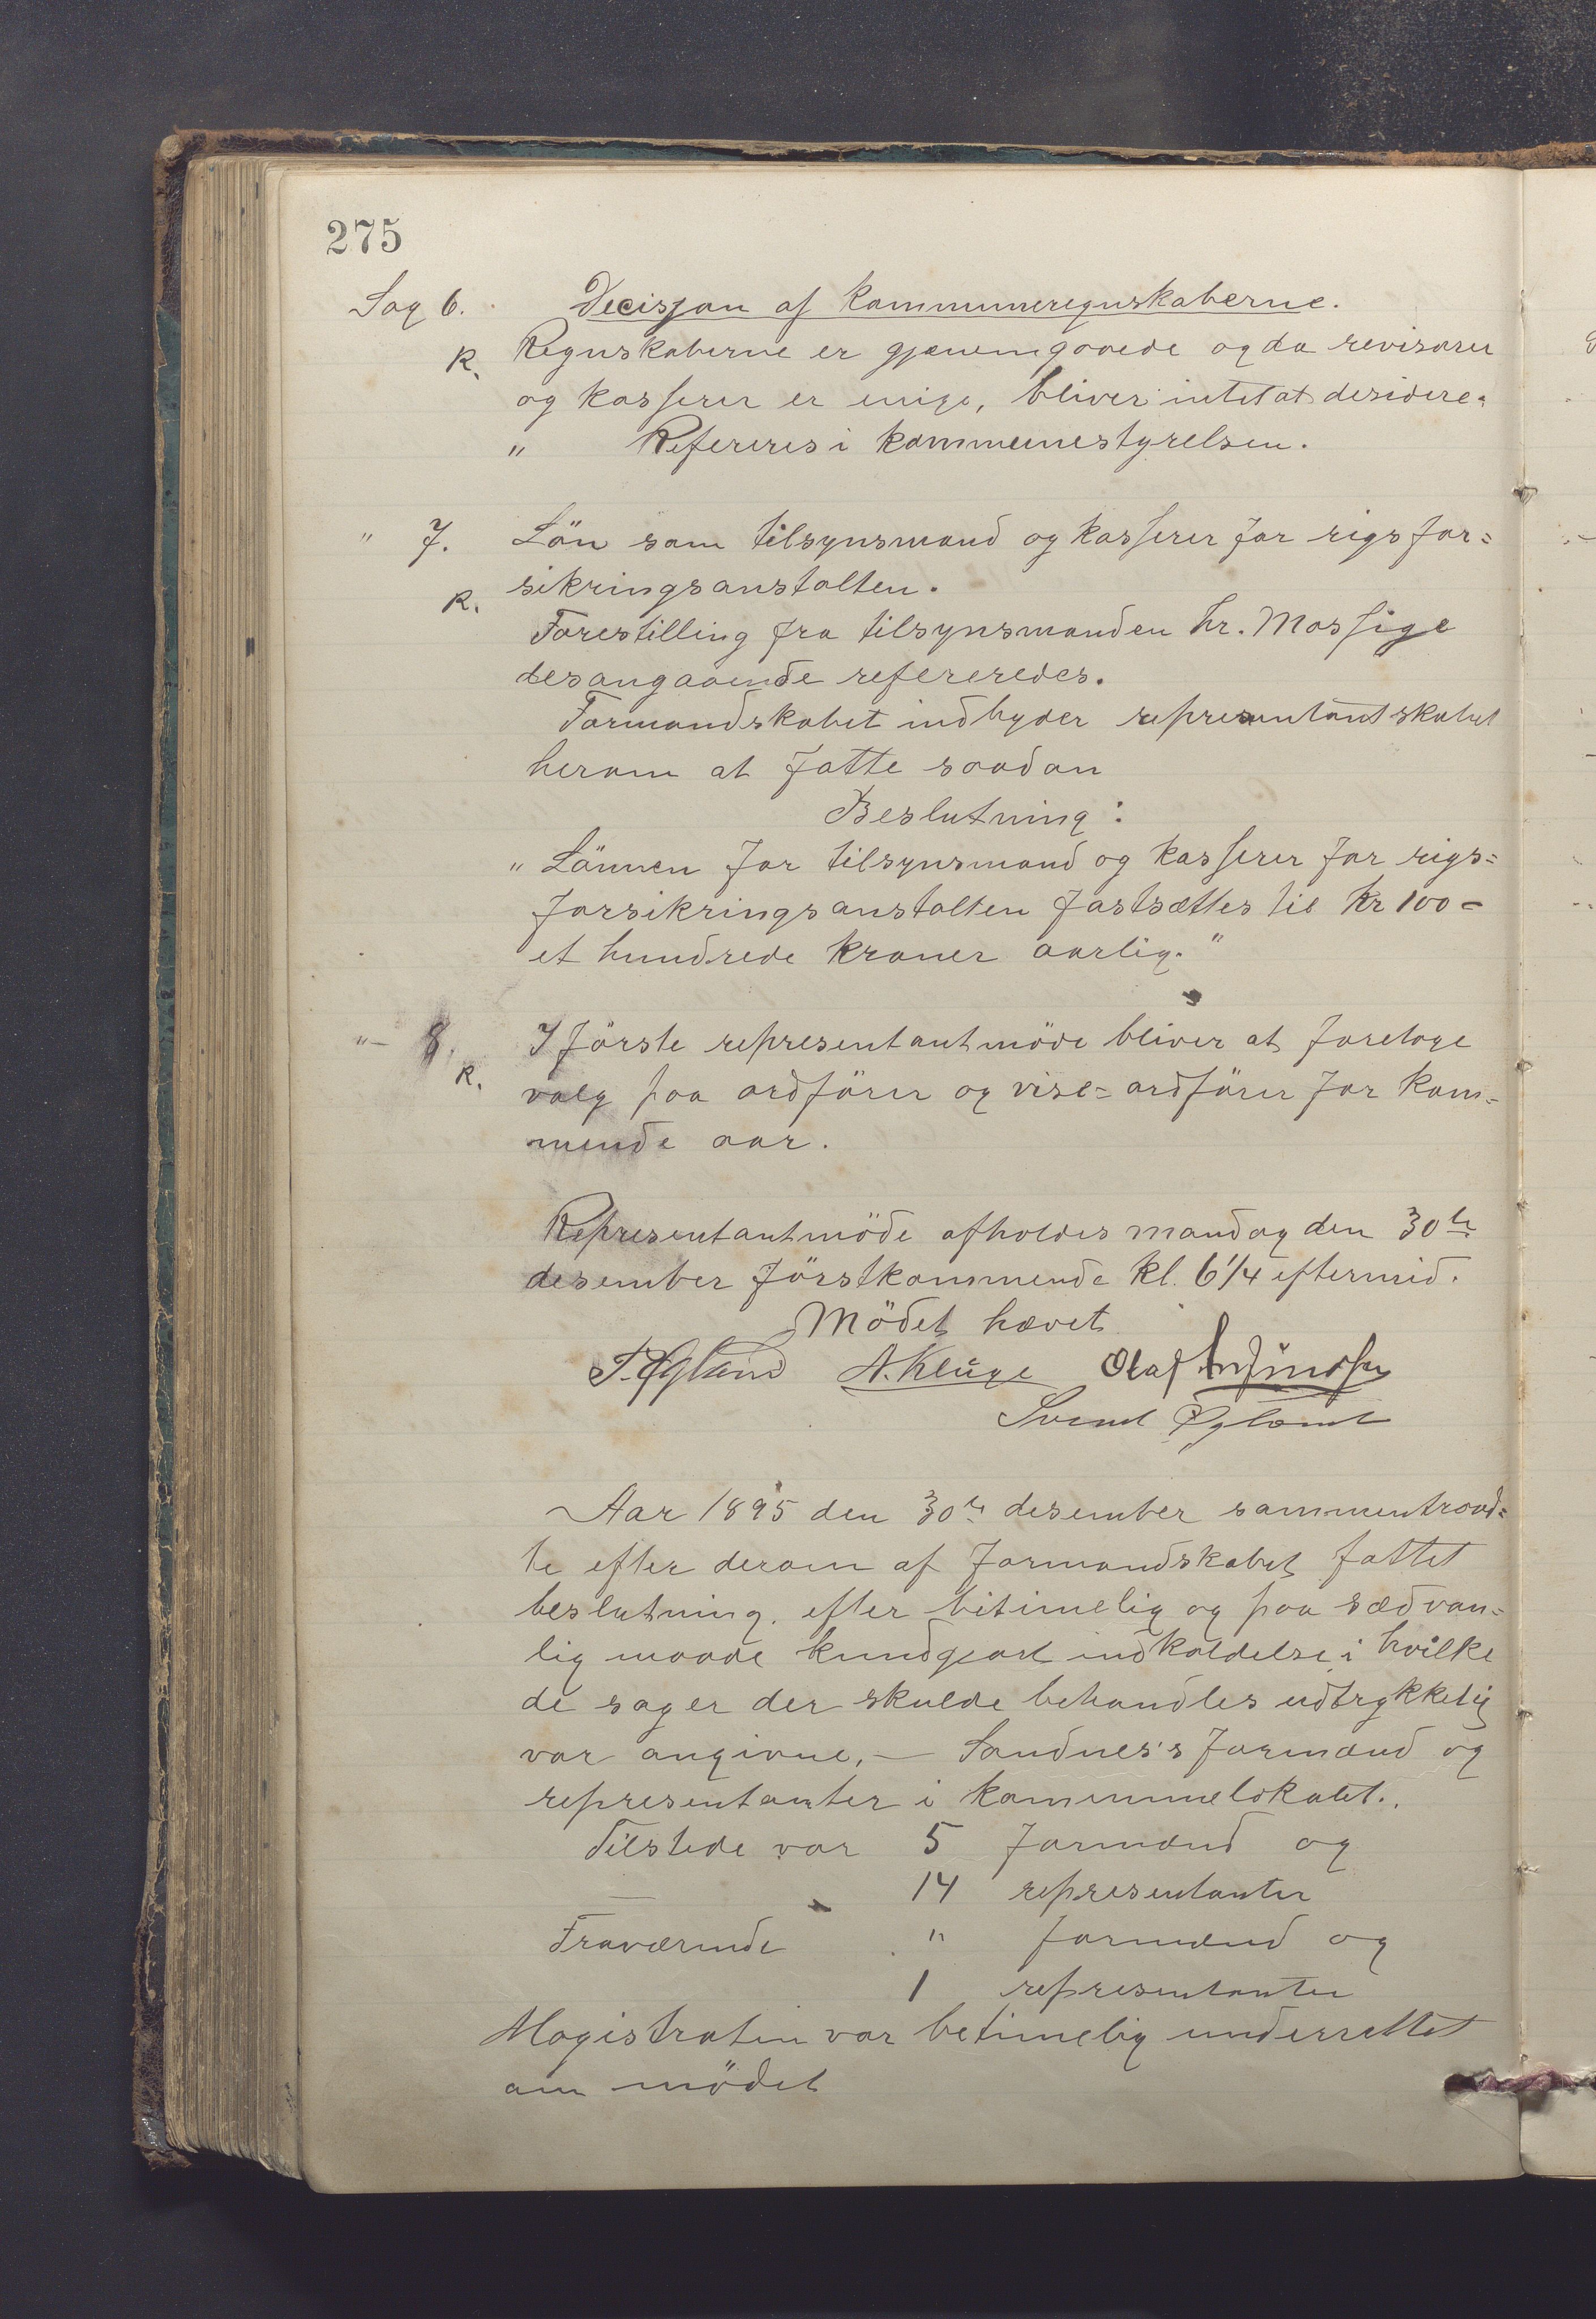 275
Sag 6. Decisjon af kommuneregnskaberne.
R. Regnskaberne er gjenemgaaede og da revisorer
og kasserer er enige, bliver intet at desidere.
" Refereres i kommunestyrelsen.
" 7. Lön som tilsynsmand og kasserer for rigsfor=
R. sikringsanstalten.
Forestilling fra tilsynsmanden hr. Mossige
desangaaende refereredes.
Formandskabet indbyder representantskabet
herom at fatte saadan
Beslutning:
"Lönnen for tilsynsmand og kasserer for rigs=
forsikringsanstalten fastsættes til kr 100 =
et hundrede kroner aarlig."
"— 8. I förste representantmöde bliver at foretage
R. valg paa ordförer og vise=ordförer for kom=
mende aar.
Representantmöde afholdes mandag den 30te
desember förstkommende kl. 6 1/4 eftermid.
Mödet hævet
T. Øgland A. Kluge Olaf
Svend Øgland
Aar 1895 den 30te desember sammentraad=
te efter derom af formandskabet fattet
beslutning, efter bitimelig og paa sædvan=
lig maade kundgjort indkaldelse i hvilke
de sager der skulde behandles udtrykkelig
var angivne, — Sandnes's formænd og
representanter i kommunelokalet.
Tilstede var 5 formænd og
— 14 representanter
Fraværende " formænd og
1 representanter
Magistraten var betimelig underrettet
om mödet